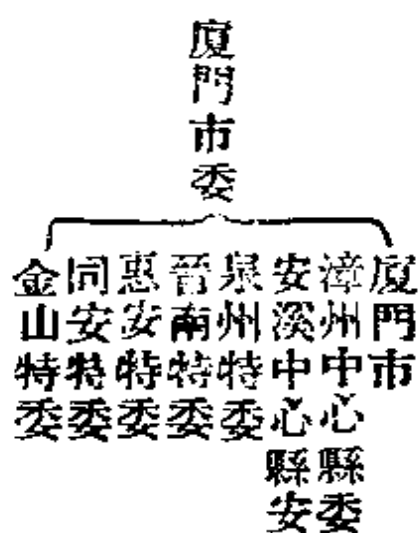 廈門市委
廈門市
漳州中心縣委
安溪中心縣安
泉州特委
晉南特委
惠安特委
同安特委
金山特委